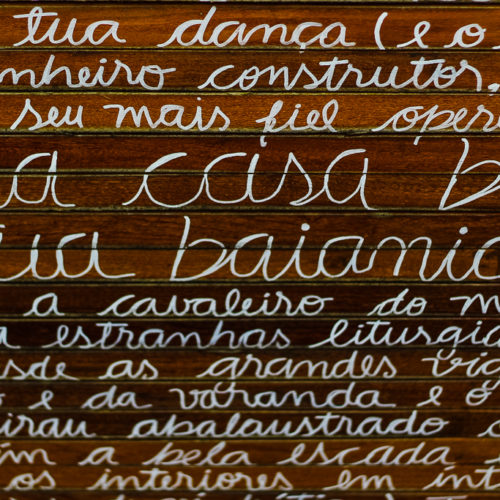 tua dança (e o
nheiro construtor,
seu mais fiel oper
a casa b
ua baiani
a cavaleiro do m
a estranhas liturgi
sde as grandes via
o e da varanda e o
irau abalaustrado
ém a pela escada
os interiores em int